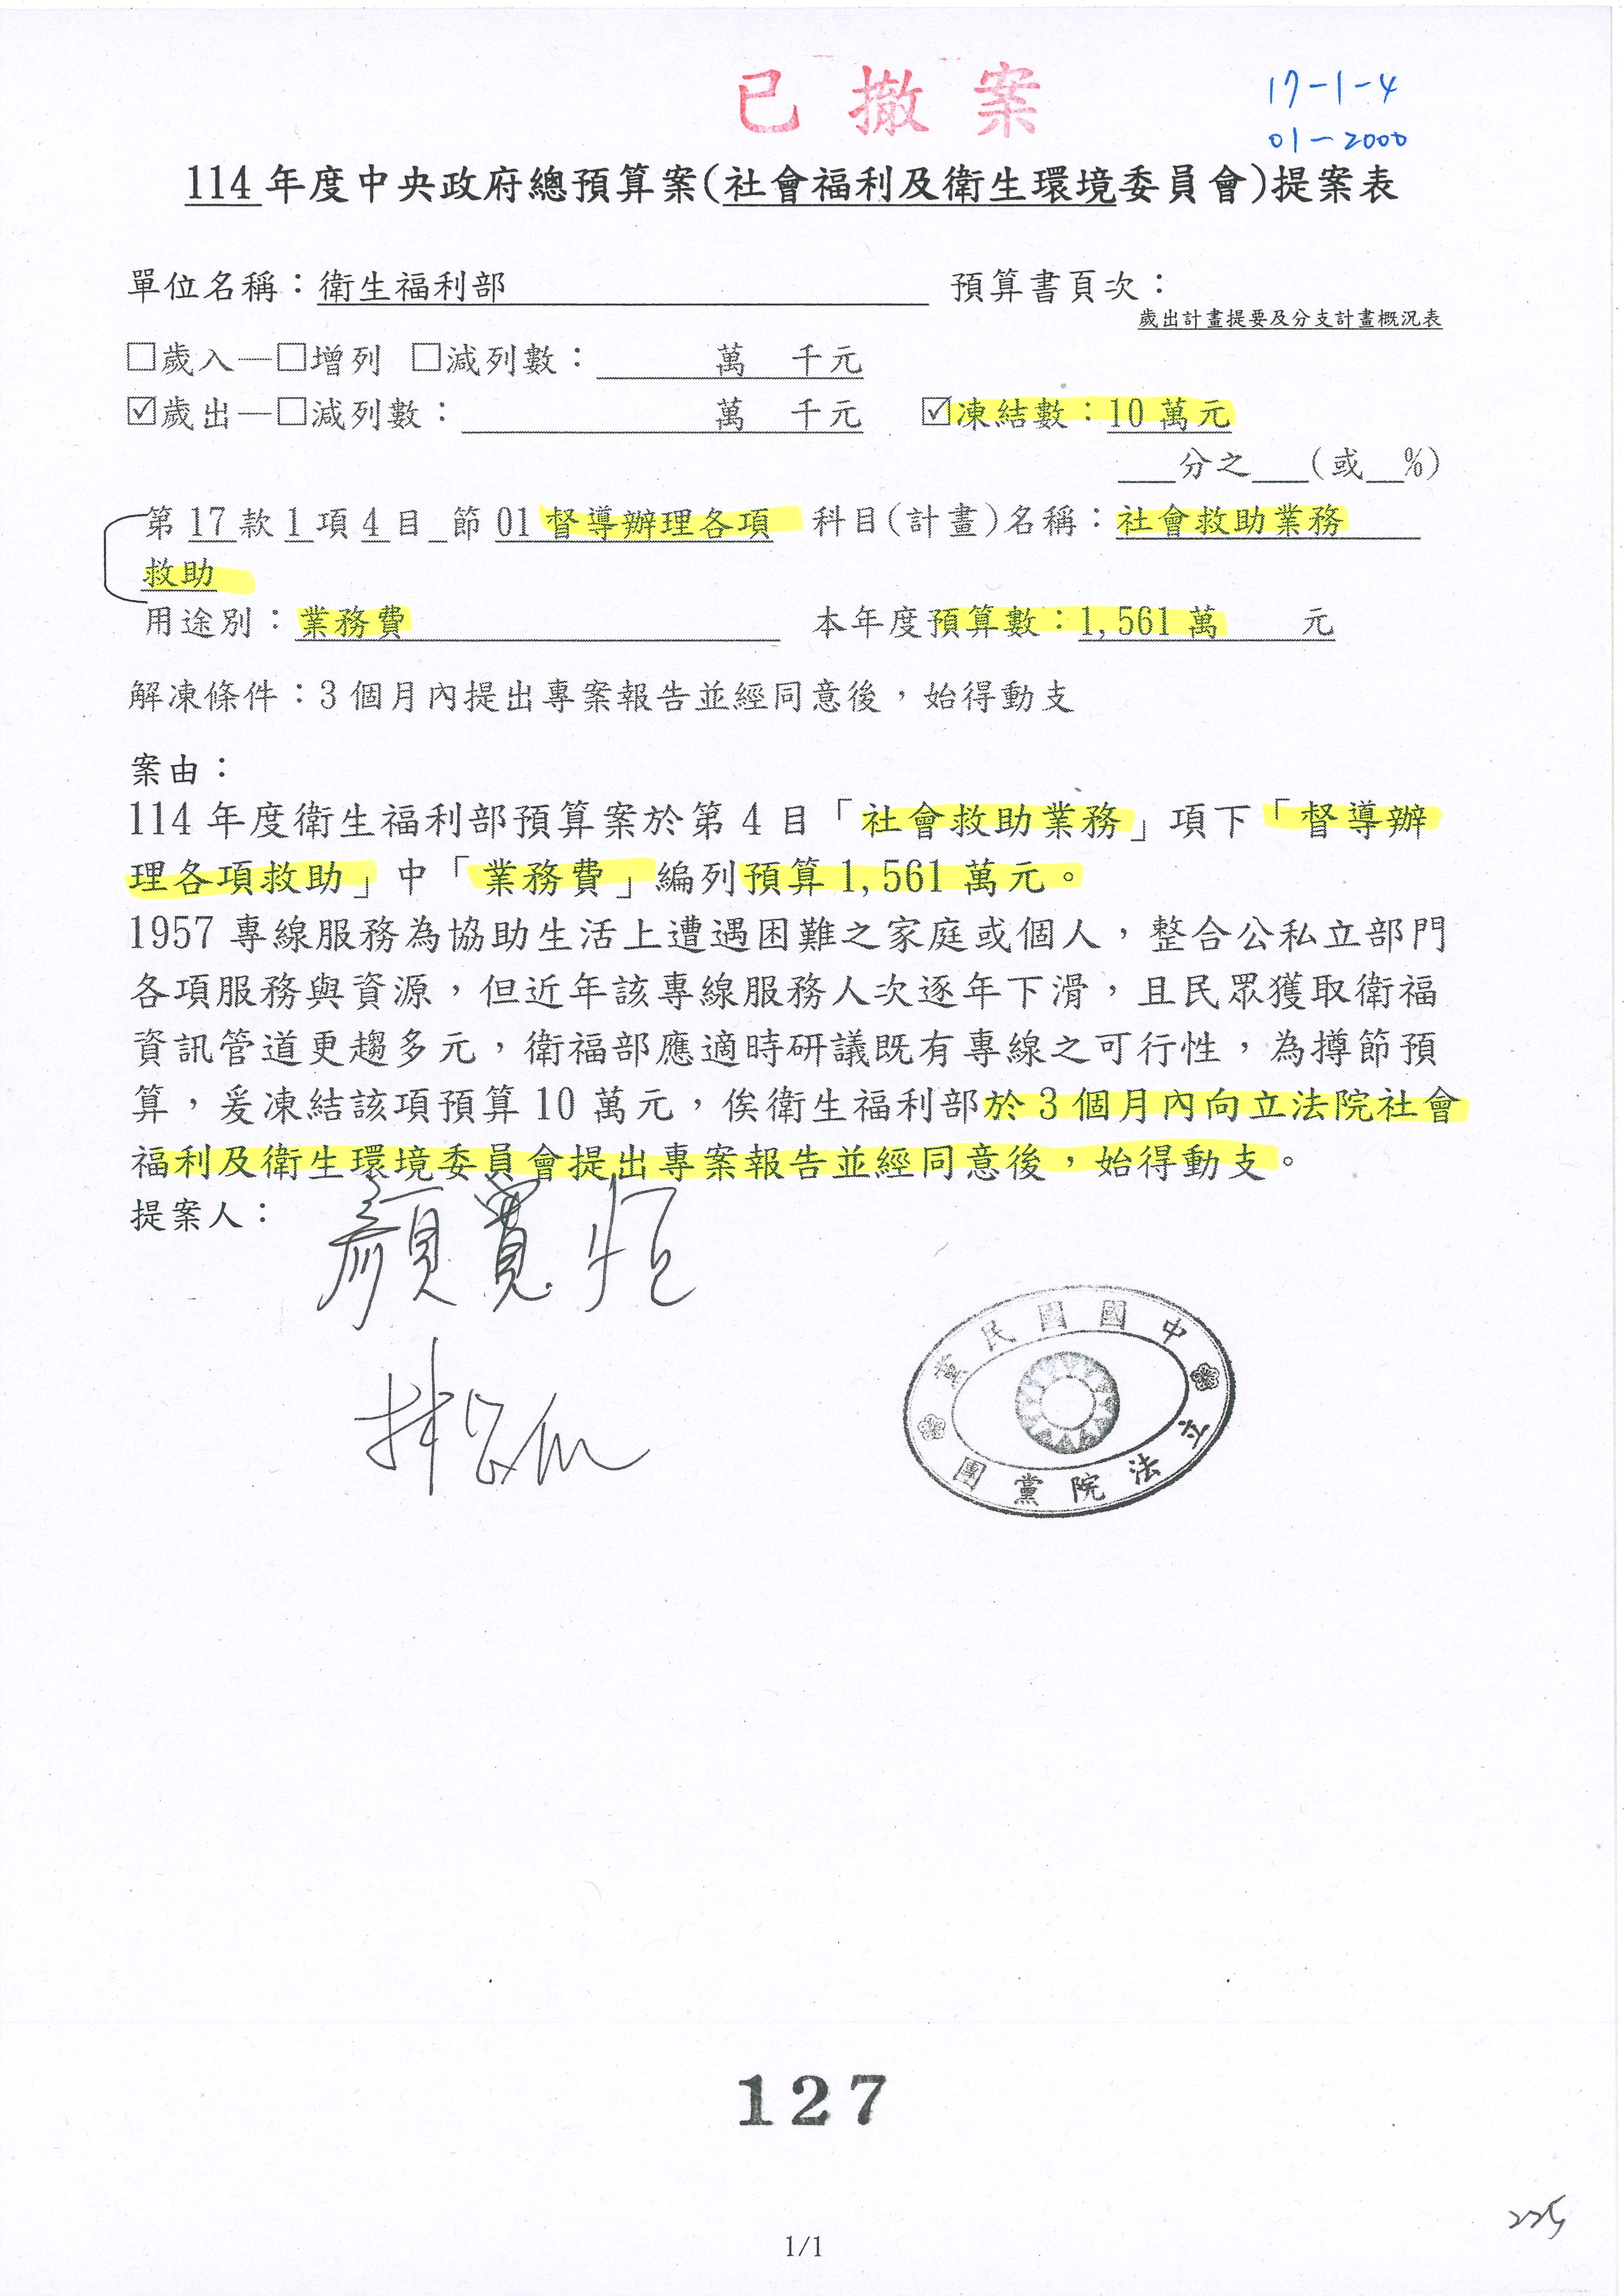 已撤案
17-1-4
01-2000
114年度中央政府總預算案(社會福利及衛生環境委員會)提案表
單位名稱：衛生福利部 預算書頁次：
歲出計畫提要及分支計畫概況表
□歲入—□增列 □減列數： 萬 千元
☑歲出—□減列數： 萬 千元 ☑凍結數：10萬元
___分之___(或__%)
第17款1項4目_節01督導辦理各項 科目(計畫)名稱：社會救助業務
救助
用途別：業務費 本年度預算數：1,561萬 元
解凍條件：3個月內提出專案報告並經同意後，始得動支
案由：
114年度衛生福利部預算案於第4目「社會救助業務」項下「督導辦
理各項救助」中「業務費」編列預算1,561萬元。
1957專線服務為協助生活上遭遇困難之家庭或個人，整合公私立部門
各項服務與資源，但近年該專線服務人次逐年下滑，且民眾獲取衛福
資訊管道更趨多元，衛福部應適時研議既有專線之可行性，為撙節預
算，爰凍結該項預算10萬元，俟衛生福利部於3個月內向立法院社會
福利及衛生環境委員會提出專案報告並經同意後，始得動支。
提案人：
顏寬恒
中國國民黨
立法院黨團
127
225
1/1